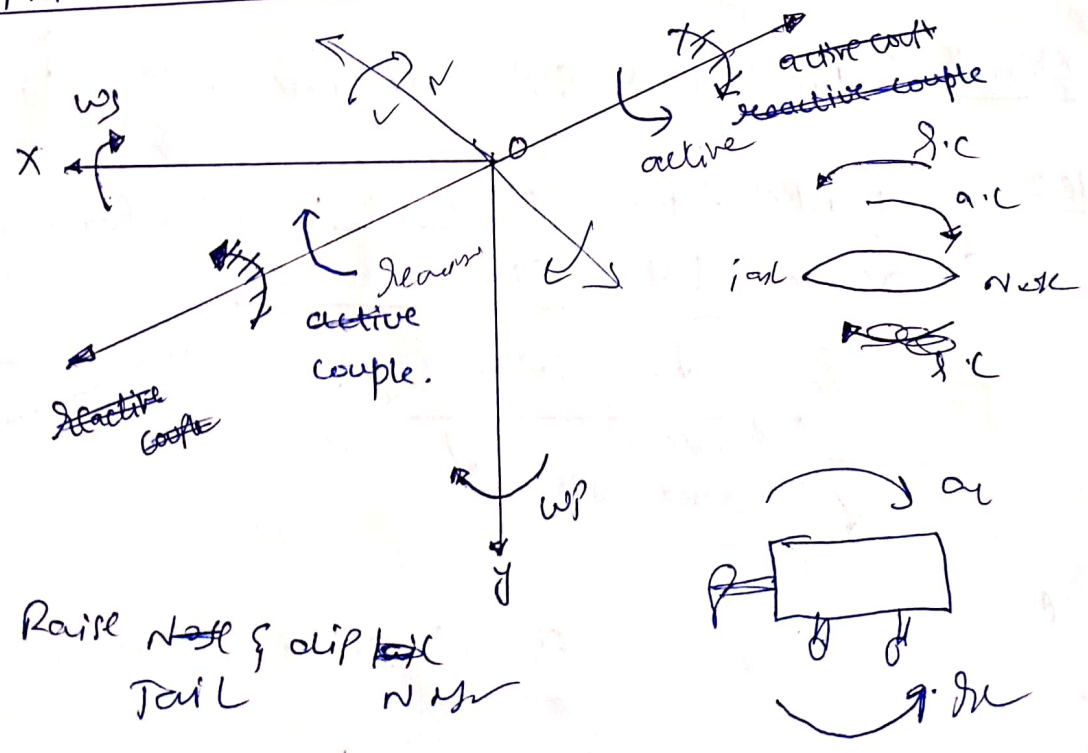 ws
X
O
active couft
reactive couple
active
r.c
a.c
tail Nose
r.c
active
couple.
Reactive
couple
wp
y
Raise Nose & dip tail
Tail Nose